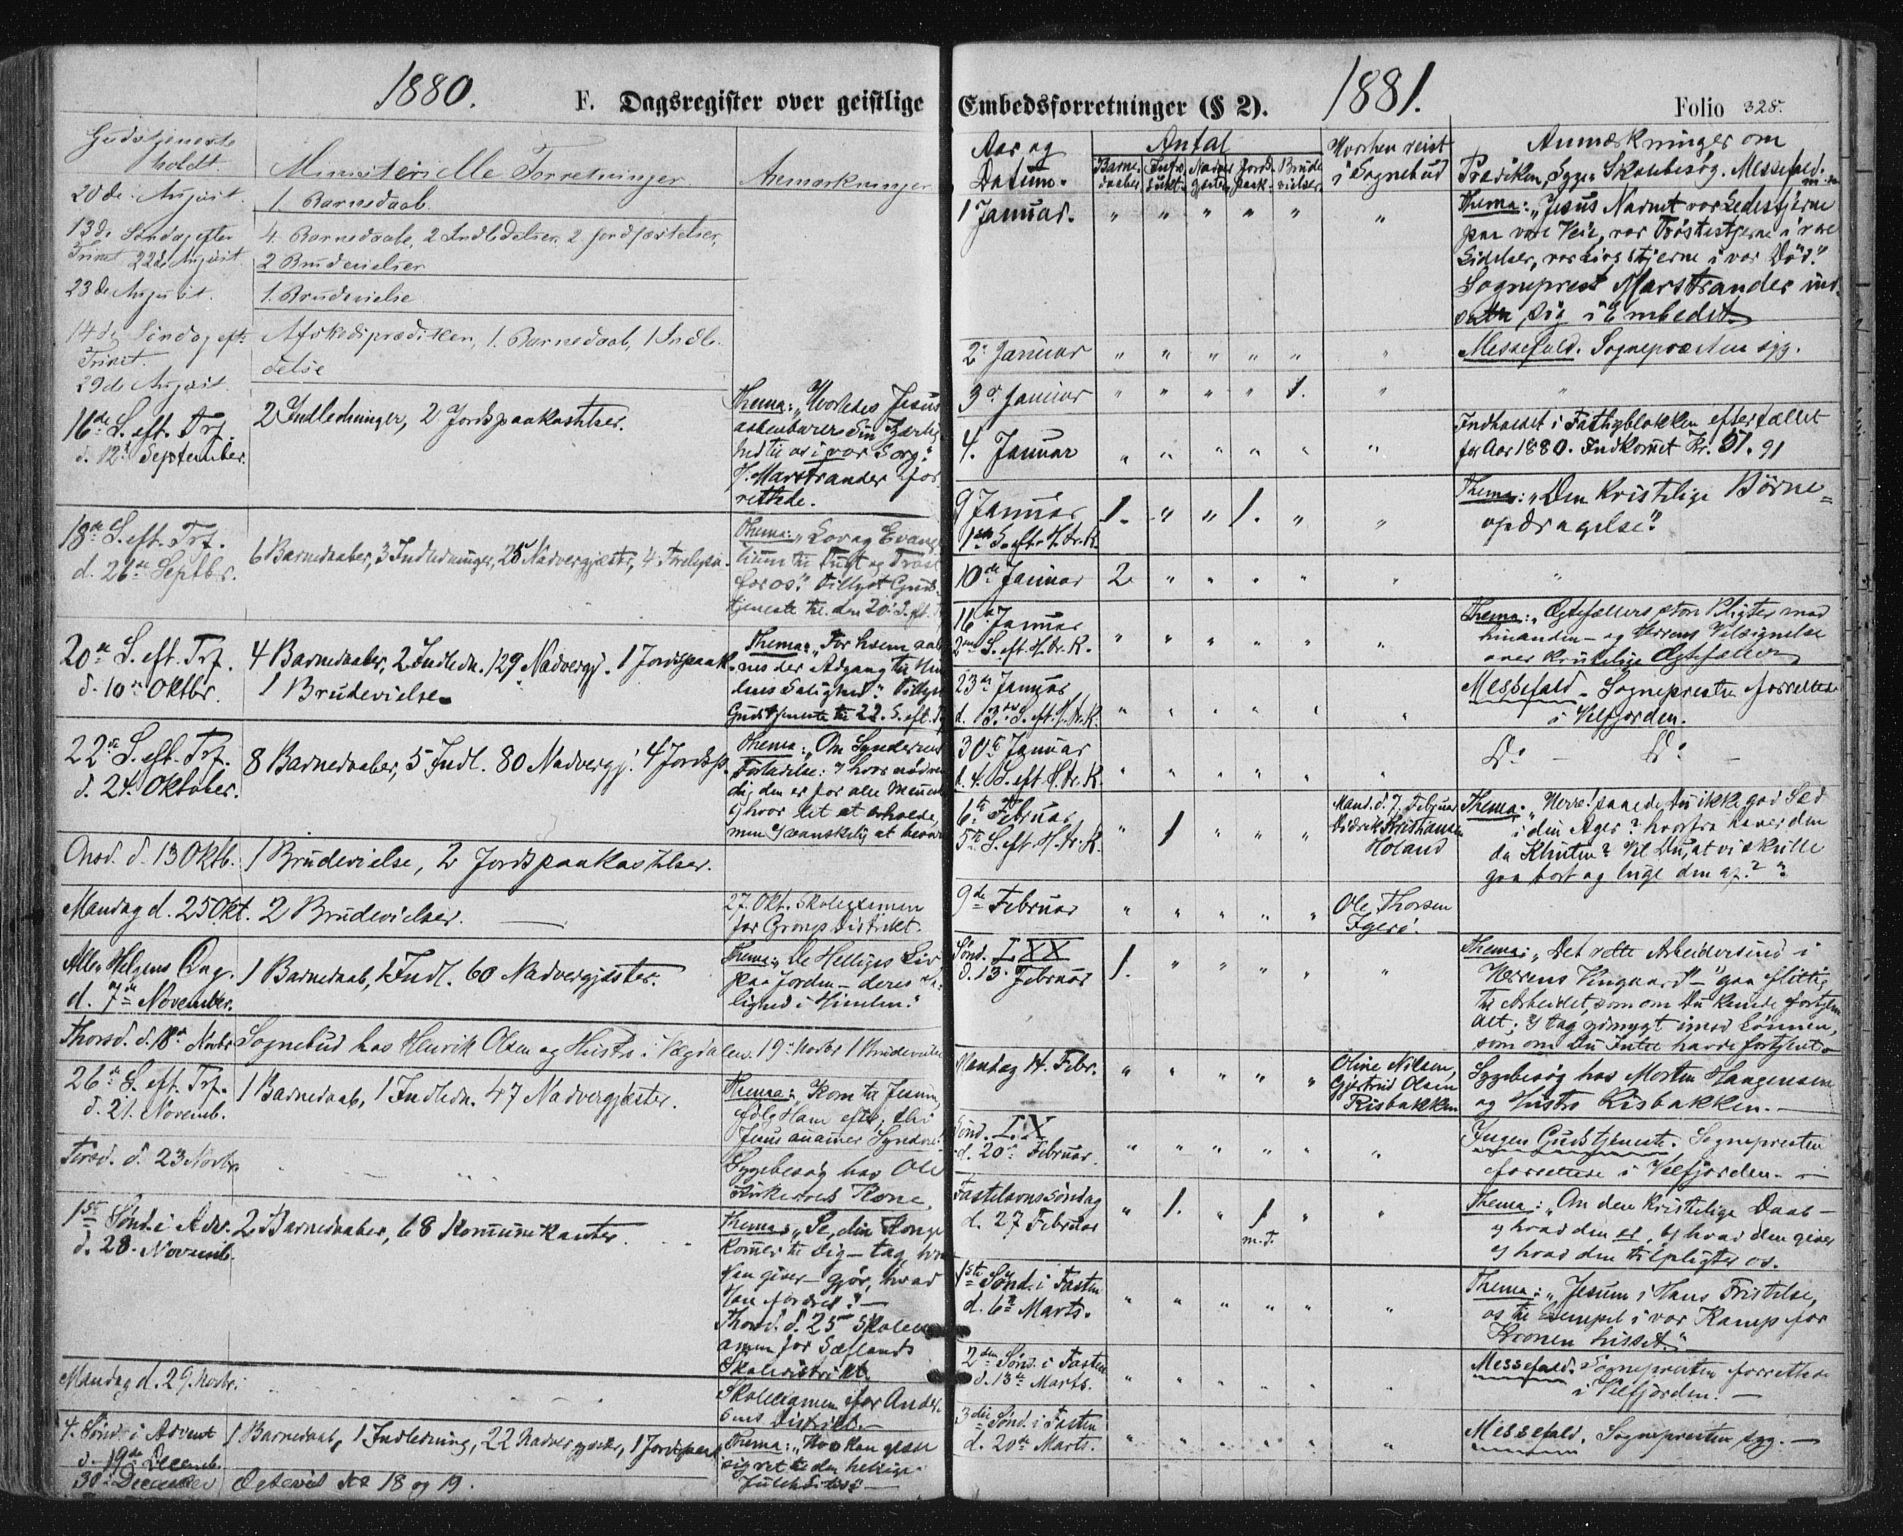 1880.
F. Dagsregister over geistlige
Gudstjeneste
holdt.
Ministerielle Forretninger
Anmærkninger
20de August.
1 Barnedaab.
13de Søndag efter
Trinit. 22de August.
4 Barnedaabe, 2 Indledelser, 2 Jordfæstelser,
2 Brudevielser
23de August.
1. Brudevielse.
14de Søndag eft.
Trinit.
29de August.
Afskedsprædiken, 1. Barnedaab, 1 Indle-
delse
16de S. eft. Trf.
d. 12te September.
2 Indledninger, 2 Jordspaakastelser.
Thema: „Hvorledes Jesus
aabenbarer sin Kjærlig-
hed til os i vor Sorg."
Marstrander for-
rettede.
18de S. eft. Trf.
d. 26de Septbr.
6 Barnedaaber, 3 Indledninger, 25 Nadvergjæster, 4
Thema: „Lov og Evange-
lium til Tugt og Trøst
for os." Tillyst Guds-
tjeneste til den 20. S. eft. T
20de S. eft. Trf.
d. 10de Oktbr.
4 Barnedaaber, 2 Indledn. 129 Nadvergj. 1 Jordspaak.
1 Brudevielse
Thema: „For hvem aab-
nes der Adgang til Him-
lens Salighed." Tillyst
Gudstjeneste til 22. S. eft. T
22de S. eft. Trf.
d. 24. Oktober.
8 Barnedaaber, 5 Indl. 80 Nadvergj. 4 Jordsp.
Thema: „Om Syndernes
Forladelse: hvor nødven-
dig den er for alle Mennesk
hvor let at erholde,
men vanskelig at bevare
Onsd. d. 13 Oktb.
1 Brudevielse, 2 Jordspaakastelser.
Mandag d. 25 Okt.
2 Brudevielser.
27. Okt. Skoleexamen
for Distrikt.
Alle Helgens Dag.
d. 7de November.
1 Barnedaab, 1 Indl. 60 Nadvergjæster.
Thema: „De Helliges Liv
paa Jorden – deres
lighed i Himlen."
Thorsd. d. 18de Novbr
Sognebud hos Henrik Olsen og Hustru i 19. Novbr 1 Brudevielse
26de S. eft. Trf.
d. 21. Novemb.
1 Barnedaab, 1 Indledn. 47 Nadvergjæster.
Thema: „Kom til Jesum,
følg Ham efter, thi
Jesus annamer Syndere."
Tirsd. d. 23 Novbr
Sygebesøg hos Ole
Kone.
1ste Sønd. i Adv.
d. 28. Novemb.
2 Barnedaaber, 68 Kommunikanter.
Thema: „Se, din Konge
kommer til dig – tag, hvad
Han giver – gjør, hvad
Han fordrer." –
Thorsd. d. 25de Skoleex-
amen for
Skoledistrikt.
Mandag d. 29. Novbr.
Skoleexamen for
Distrikt. –
4. Sønd. i Advent
d. 19de Decemb.
1 Barnedaab, 1 Indledning, 22 Nadvergjæster, 1 Jordspaak
Thema: „Hvo kan glæde
sig ret til den hellige
30. December
Ægtevid No 18 og 19.
Embedsforretninger (§ 2).
1881.
Folio 328.
Aar og
Datum.
Antal
Barne-
daaber
Introdukt.
Nadver
gjæster
Jords
paak.
Brude
vielser
Hvorhen reist
i Sognebud
Anmærkninger om
Prædiken, Syge- Skolebesøg. Messefald. m. m.
1 Januar.
Thema: „Jesus Navnet vor Ledestjerne
paa vore Veie, vor Trøstestjerne i vore
Lidelser, vor Livsstjerne i vor Død."
Sogneprest Marstrander ind-
satte sig i Embedet.
2. Januar
Messefald. Sognepræsten syg.
3de Januar
1.
4. Januar
Indholdet i Fattigblokken eftertællet
for Aar 1880. Indkomet Kr. 51.91
9 Januar
1ste S. eft. H. tr. K.
1. 1.
Thema: „Den kristelige Børne=
opdragelse."
10de Januar
2
16de Januar
2den S. eft. H. tr. K.
Thema: „Ægtefællers store Pligter mod
hinanden – og Herrens Velsignelse
over kristelige Ægtefæller
23de Januar
d. 3die S. eft. H. tr. K.
Messefald – Sognepresten forrettede
i Velfjorden.
30te Januar
d. 4. S. eft. H. tr. K.
Do – Do –
6te Februar
5te S. eft. H. tr. K.
1
Mand. d. 7. Februar
Didrik Kristiansen
Holand
Thema: „Herre! saaede Du ikke god Sæd
i din Ager? hvorfra haver den
da Klinten? Vil Du, at vi skulle
gaa bort og luge den af?"?
9de Februar
Ole Thorsen
Igerø.
Sønd. LXX
d. 13. Februar
1.
Thema: „Det rette Arbeidersind i
Herrens Vingaard" – „gaa flittig
til Arbeidet, som om Du kunde fortjene
Alt; tag ydmygt imod Lønnen,
som om Du Intet havde fortjent"
Mandag 14. Febr.
Oline Nilsen,
Gjertrud Olsen
Risbakken
Sygebesøg hos Morten Haagensen
og Hustru Risbakken. –
Sønd. LX
d. 20de Februar
Ingen Gudstjeneste. Sognepresten
forrettede i Velfjorden. –
Fastelavnssøndag
d. 27 Februar
1. 1
m. T.
Thema: „Om den kristelige Daab –
hvad den er, hvad den giver
hvad den tilpligter os.
1ste Sønd. i Fasten
d. 6te Marts.
Thema: „Jesum i Hans Fristelse,
os til Exempel i vor Kamp for
Kronen hisset."
2den Sønd. i Fasten
d. 13de Marts.
Messefald. Sognepresten forrettede
i Velfjorden. –
3die Sønd. i Fasten
d. 20de Marts.
Messefald. Sognepresten syg. –